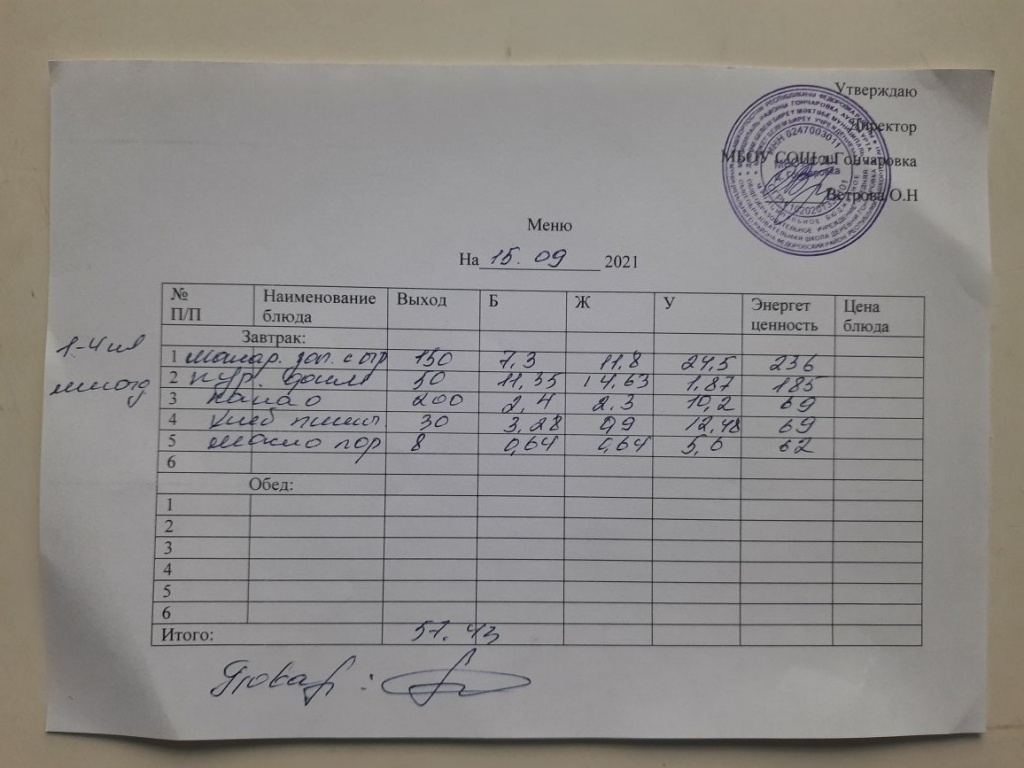 Утверждаю
Директор
МБОУ СОШ д.Гончаровка
Ветрова О.Н
ИНН 0247003011
Меню
На 15. 09 2021
№ П/П Наименование блюда Выход Б Ж У Энергет ценность Цена блюда
Завтрак:
1-4 кл
1 Макар. зап. с сыр 150 7,3 11,8 24,5 236
2 кур. 50 11,35 14,63 1,87 185
3 какао 200 2,4 2.3 10,2 69
4 хлеб пшен 30 3,28 0,9 12,48 69
5 масло пор 8 0,64 0,64 5,6 62
6
Обед:
1
2
3
4
5
6
Итого: 57.43
Повар :